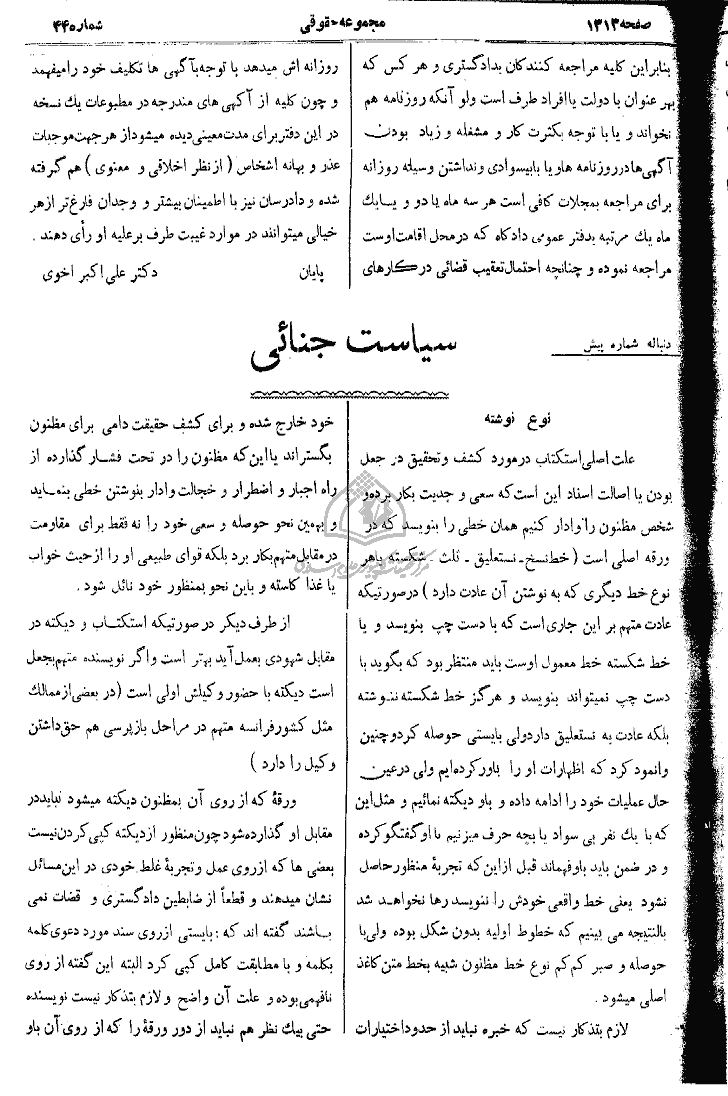 صفحه ۱۳۱۳
مجموعه حقوقی
شماره ۴۴۰
بنابراین کلیه مراجعه کنندگان بدادگستری و هر کس که
بهر عنوان با دولت یا افراد طرف است ولو آنکه روزنامه هم
نخواند و یا با توجه بکثرت کار و مشغله و زیاد بودن
آگهی‌ها در روزنامه ها و یا با بیسوادی و نداشتن وسیله روزانه
برای مراجعه بمجلات کافی است هر سه ماه یا دو و یا یک
ماه یک مرتبه بدفتر عمومی دادگاه که در محل اقامت اوست
مراجعه نموده و چنانچه احتمال تعقیب قضائی در کارهای
روزانه اش میدهد با توجه بآگهی ها تکلیف خود را میفهمد
و چون کلیه از آگهی های مندرجه در مطبوعات یك نسخه
در این دفتر برای مدت معینی دیده میشود از هر جهت موجبات
عذر و بهانه اشخاص ( از نظر اخلاقی و معنوی ) هم گرفته
شده و دادرسان نیز با اطمینان بیشتر و وجدان فارغ تر از هر
خیالی میتوانند در موارد غیبت طرف بر علیه او رأی دهند .
پایان دکتر علی اکبر اخوی
دنباله شماره پیش
سیاست جنائی
نوع نوشته
علت اصلی استکتاب در مورد کشف و تحقیق در جعل
بودن یا اصالت اسناد این است که سعی و جدیت بکار برده و
شخص مظنون را وادار کنیم همان خطی را بنویسد که در
ورقه اصلی است ( خط نسخ ـ نستعلیق ـ ثلث ـ شکسته یا هر
نوع خط دیگری که به نوشتن آن عادت دارد ) در صورتیکه
عادت متهم بر این جاری است که با دست چپ بنویسد و یا
خط شکسته خط معمول اوست باید منتظر بود که بگوید با
دست چپ نمیتواند بنویسد و هرگز خط شکسته ننوشته
بلکه عادت به نستعلیق دارد ولی بایستی حوصله کرد و چنین
وانمود کرد که اظهارات او را باور کرده ایم ولی در عین
حال عملیات خود را ادامه داده و باو دیکته نمائیم و مثل این
که با یك نفر بی سواد یا بچه حرف میزنیم با او گفتگو کرده
و در ضمن باید باو فهماند قبل از این که تجربهٔ منظور حاصل
نشود یعنی خط واقعی خودش را ننویسد رها نخواهد شد
بالنتیجه می بینیم که خطوط اولیه بدون شکل بوده ولی با
حوصله و صبر کم کم نوع خط مظنون شبیه بخط متن کاغذ
اصلی میشود .
لازم بتذکار نیست که خبره نباید از حدود اختیارات
خود خارج شده و برای کشف حقیقت دامی برای مظنون
بگستراند یا این که مظنون را در تحت فشار گذارده از
راه اجبار و اضطرار و خجالت وادار بنوشتن خطی بنماید
و بهمین نحو حوصله و سعی خود را نه فقط برای مقاومت
در مقابل متهم بکار برد بلکه قوای طبیعی او را از حیث خواب
یا غذا کاسته و باین نحو بمنظور خود نائل شود .
از طرف دیگر در صورتیکه استکتاب و دیکته در
مقابل شهودی بعمل آید بهتر است و اگر نویسنده متهم بجعل
است دیکته با حضور وکیلش اولی است ( در بعضی از ممالك
مثل کشور فرانسه متهم در مراحل بازپرسی هم حق داشتن
وکیل را دارد )
ورقهٔ که از روی آن بمظنون دیکته میشود نباید در
مقابل او گذارده شود چون منظور از دیکته کپی کردن نیست
بعضی ها که از روی عمل و تجربهٔ غلط خودی در این مسائل
نشان میدهند و قطعاً از ضابطین دادگستری و قضات نمی
باشند گفته اند که : بایستی از روی سند مورد دعوی کلمه
بکلمه و با مطابقت کامل کپی کرد البته این گفته از روی
نافهمی بوده و علت آن واضح و لازم بتذکار نیست نویسنده
حتی بیك نظر هم نباید از دور ورقهٔ را که از روی آن باو